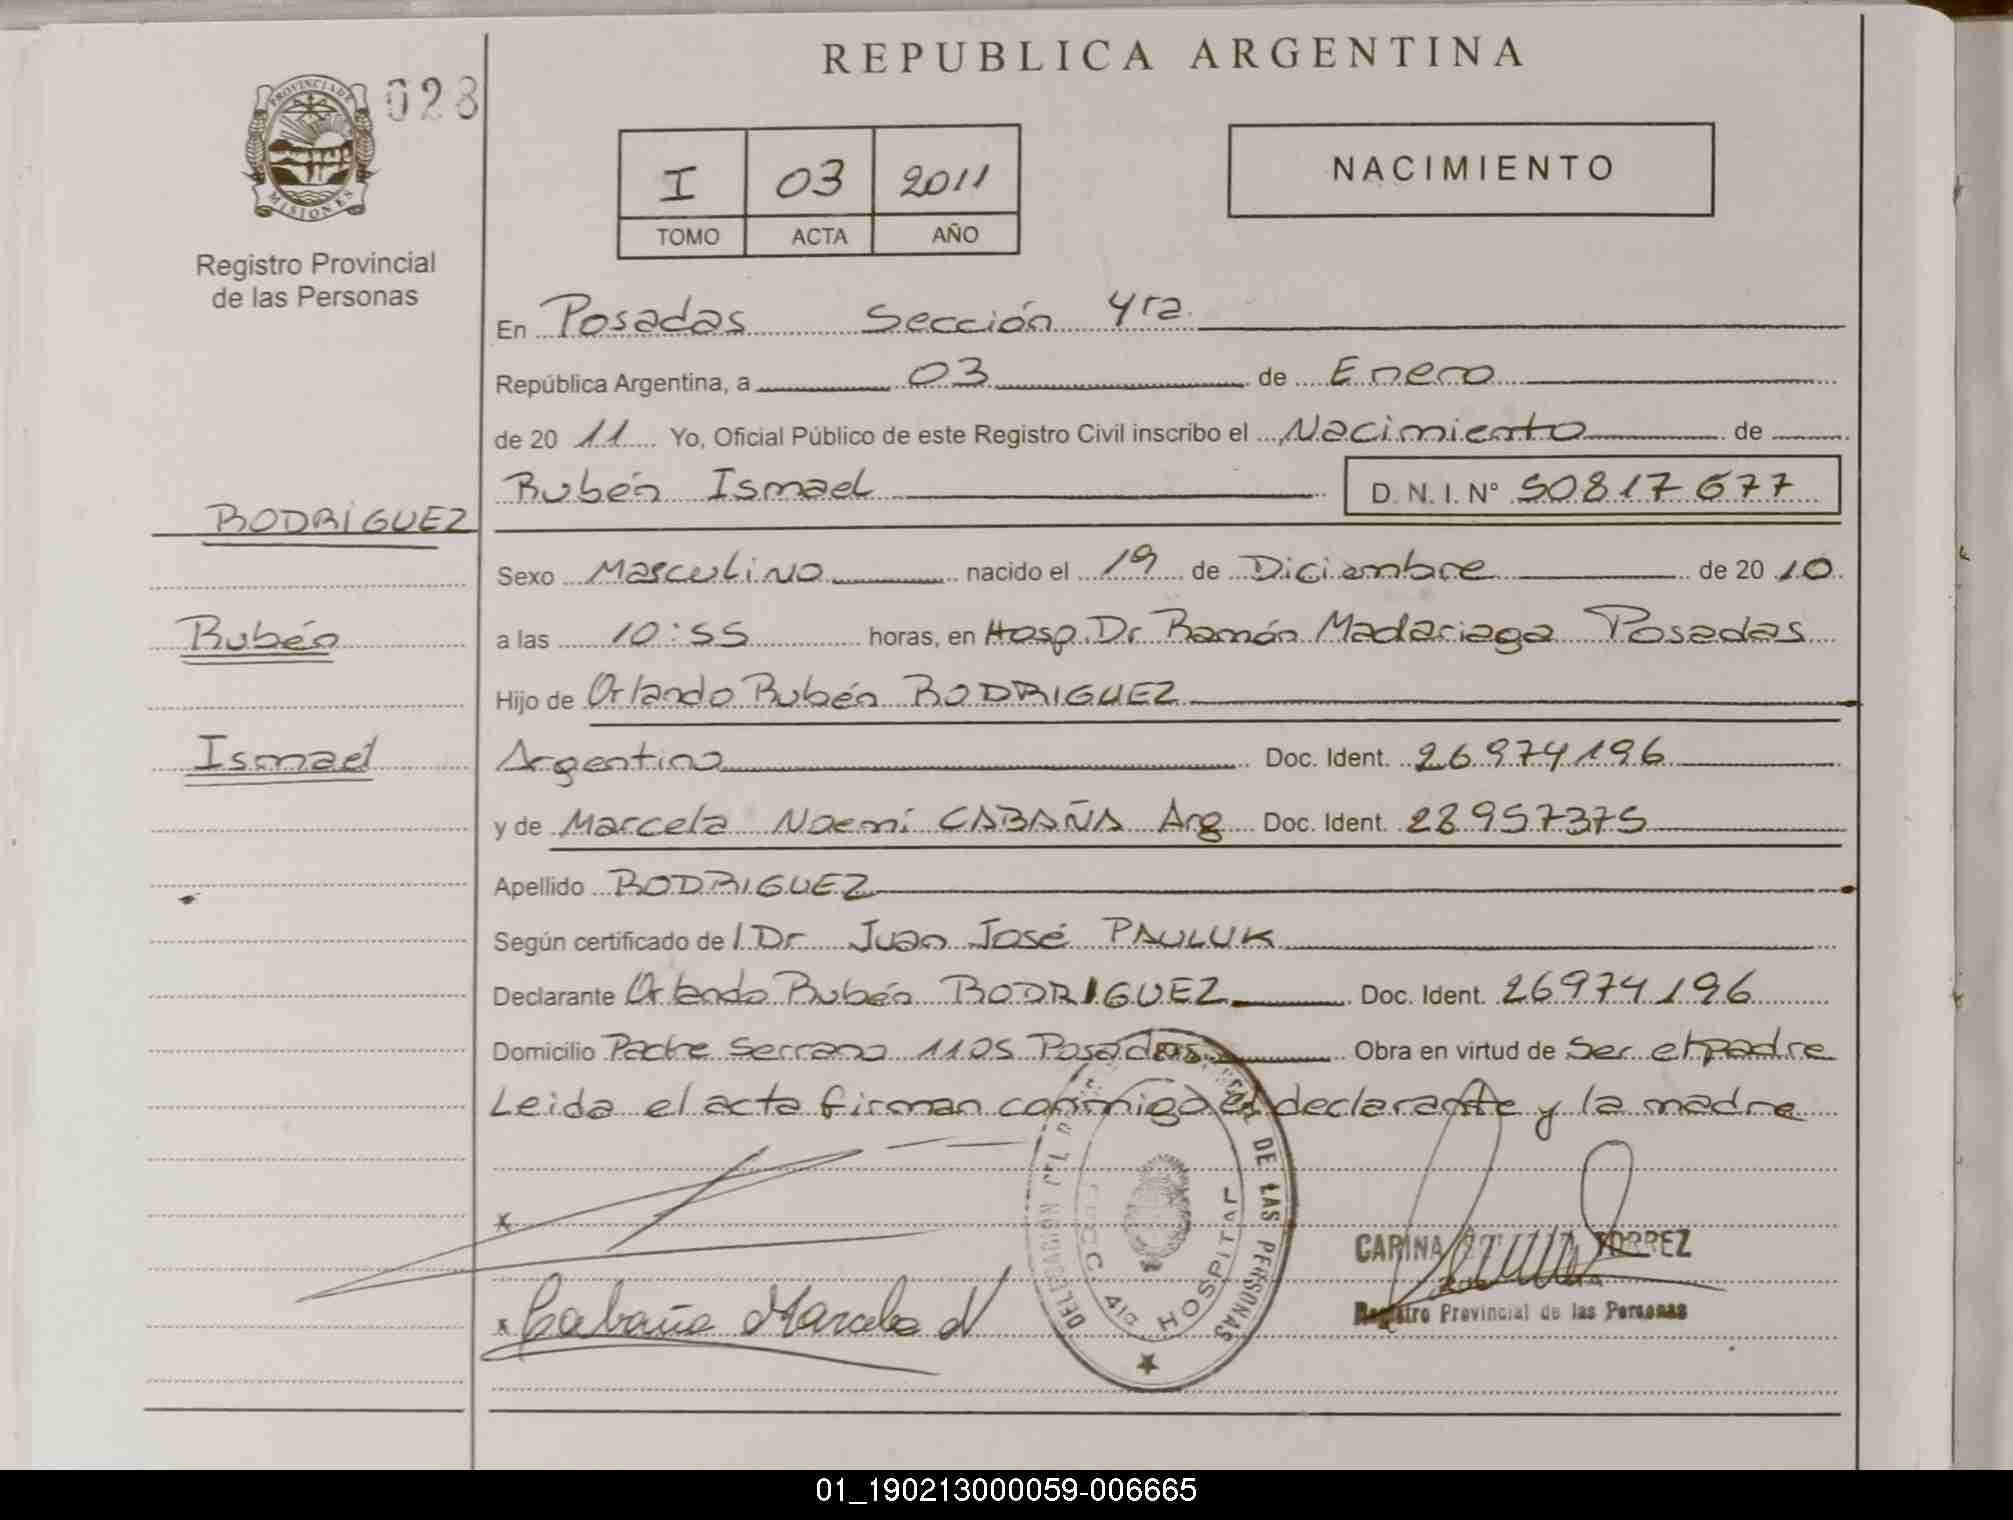 REPUBLICA ARGENTINA
PROVINCIA DE
MISIONES
028
Registro Provincial
de las Personas
I 03 2011
TOMO ACTA AÑO
NACIMIENTO
En Posadas Sección 4ta
República Argentina, a 03 de Enero
de 20 11 Yo, Oficial Público de este Registro Civil inscribo el Nacimiento de
Rubén Ismael D. N. I. N° 50817677
RODRIGUEZ
Sexo Masculino nacido el 19 de Diciembre de 20 10
Rubén
a las 10:55 horas, en Hosp. Dr Ramón Madariaga Posadas
Hijo de Orlando Rubén RODRIGUEZ
Ismael
Argentino Doc. Ident. 26974196
y de Marcela Noemi CABAÑA Arg Doc. Ident. 28957375
Apellido RODRIGUEZ
Según certificado de l Dr Juan José PAULUK
Declarante Orlando Rubén RODRIGUEZ Doc. Ident. 26974196
Domicilio Padre Serrano 1105 Posadas Obra en virtud de Ser el padre
Leida el acta firman conmigo el declarante y la madre
x
CARINA TORREZ
Registro Provincial de las Personas
x Cabaña Marcela N
DELEGACION DEL DE LAS PERSONAS
SECC. 4ta HOSPITAL
01_190213000059-006665